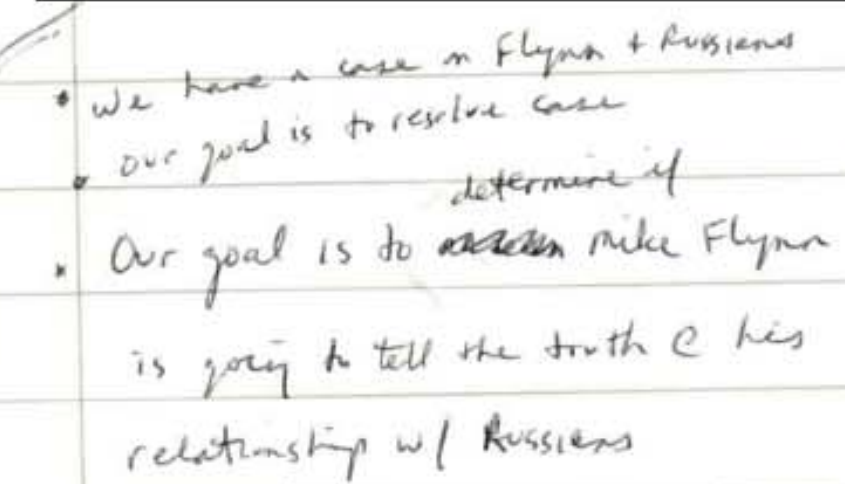 • We have a case on Flynn + Russians
• Our goal is to resolve case
determine if
• Our goal is to Mike Flynn
is going to tell the truth @ his
relationship w/ Russians